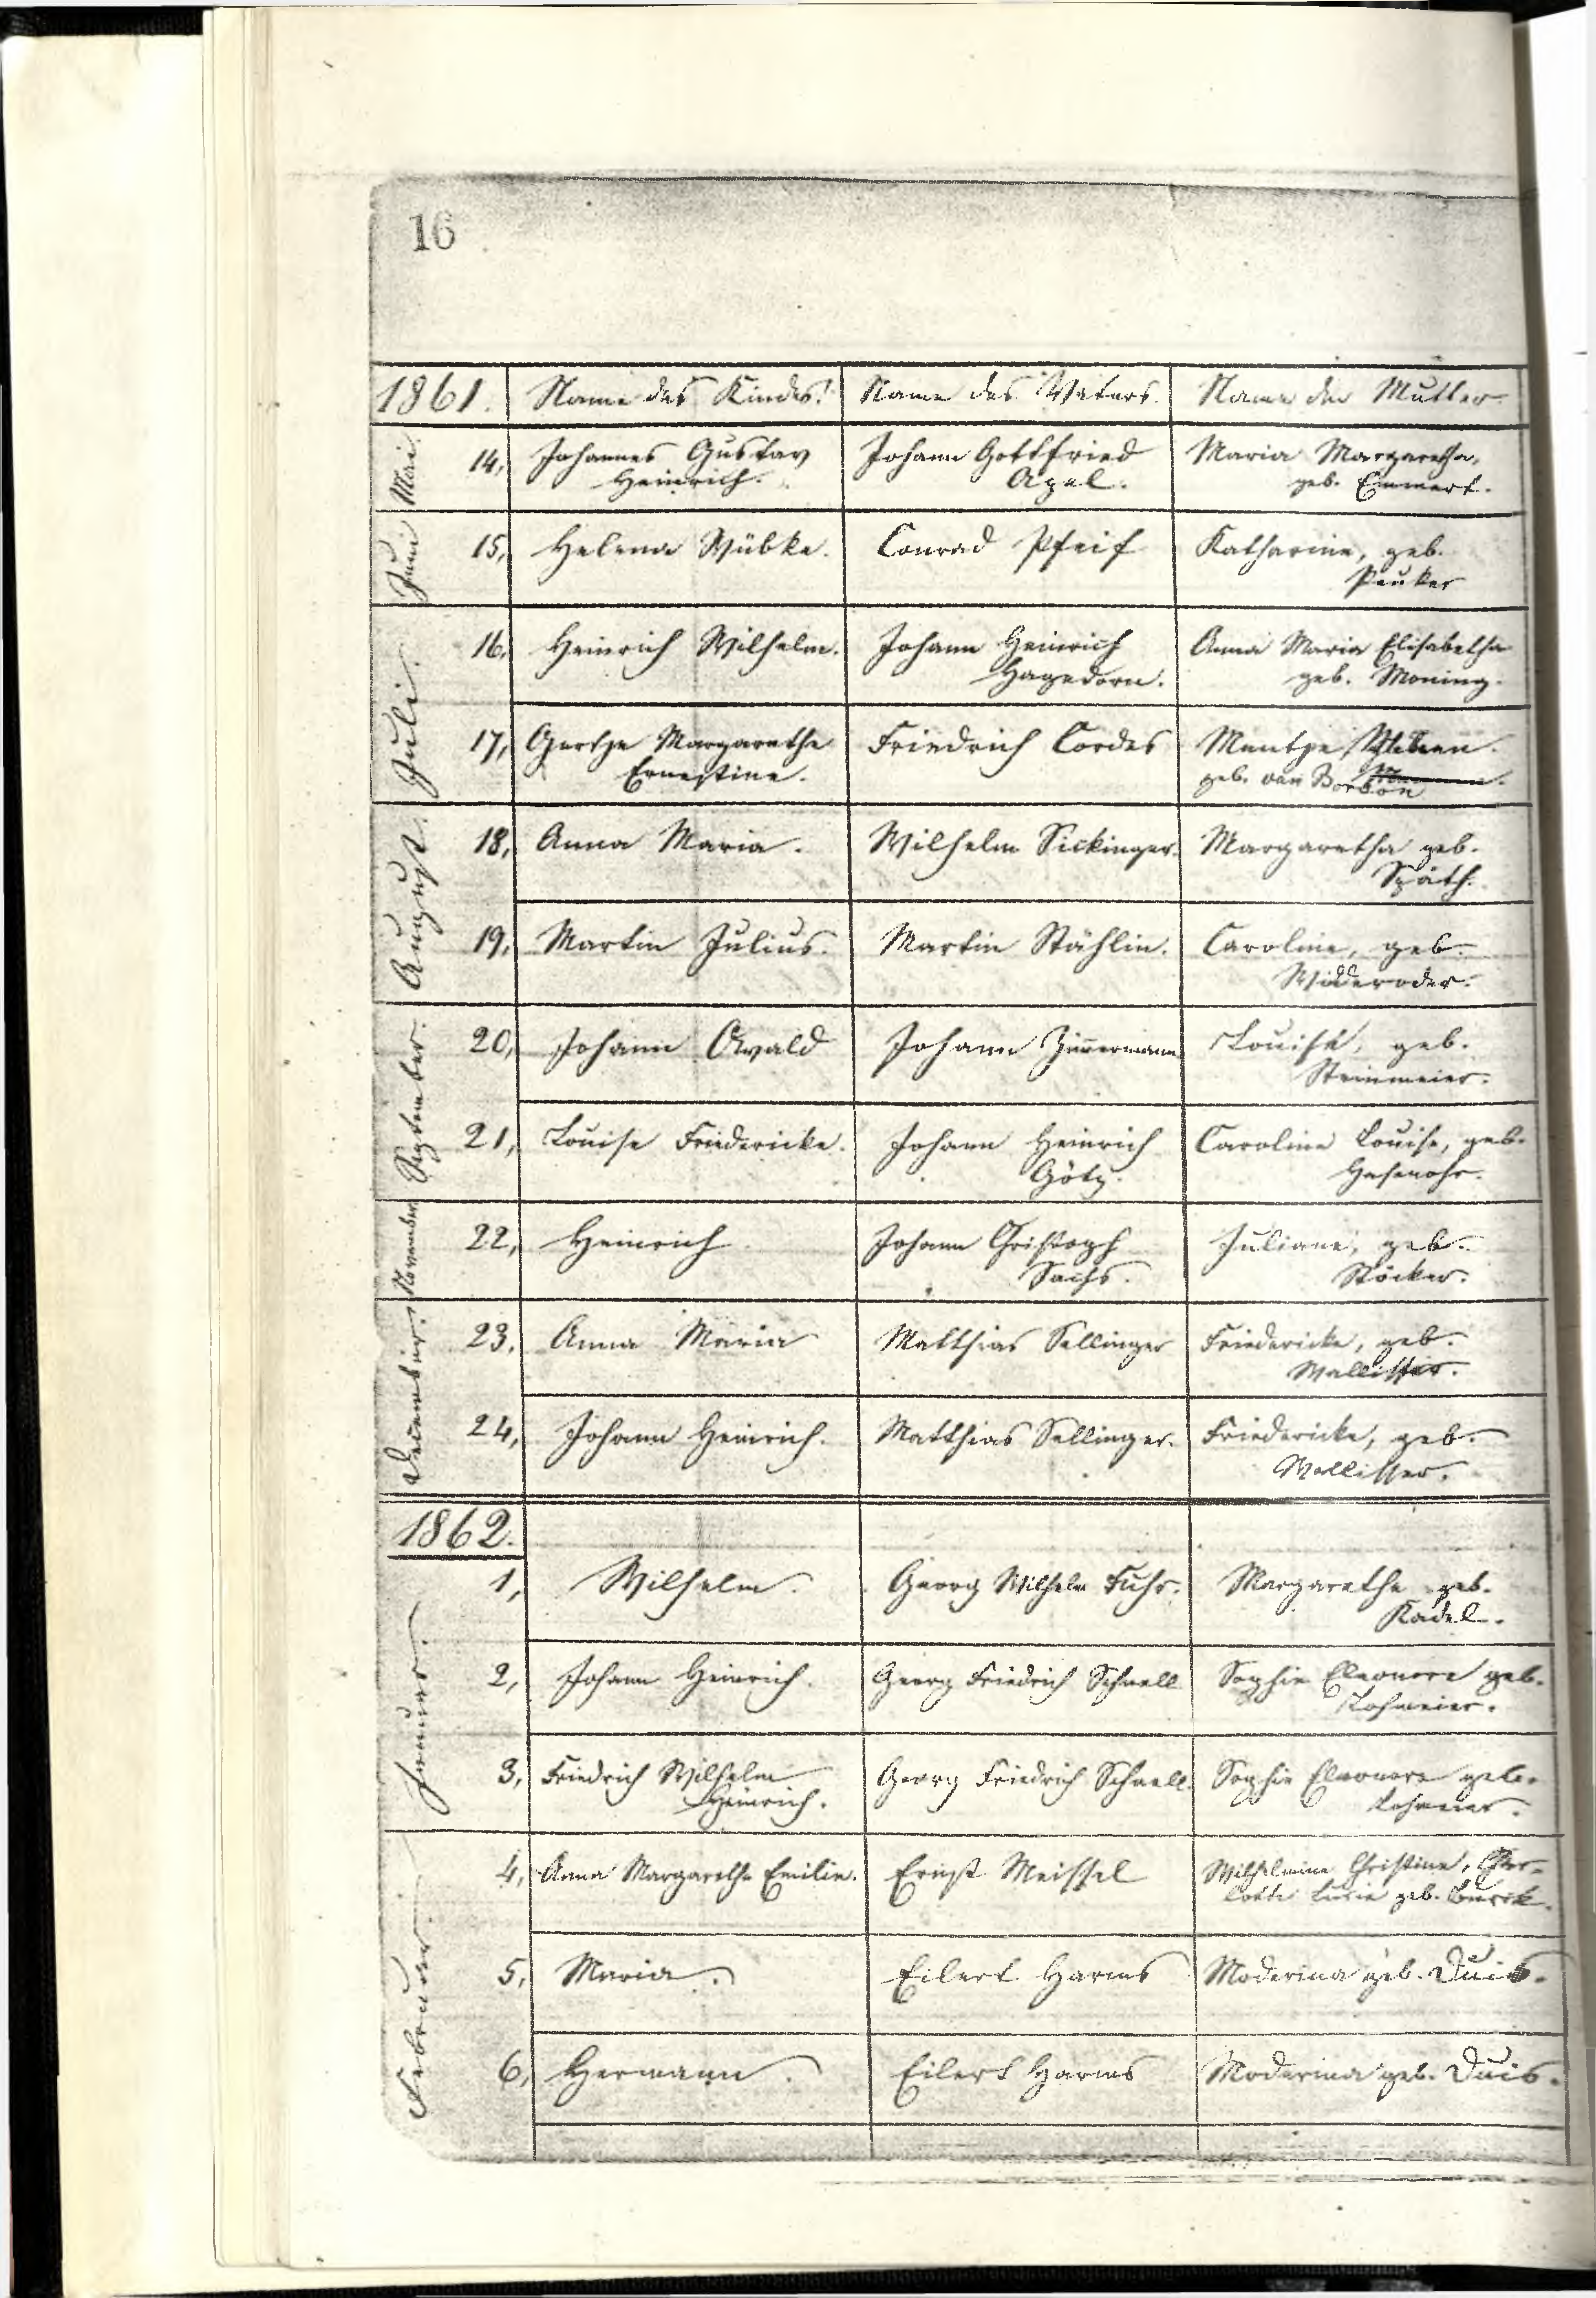 16
1861. Name des Kindes. Name des Vaters. Name der Mutter.
Mai. 14, Johannes Gustav Johann Gottfried Maria Margaretha,
Heinrich. Apel. geb. Emmert.
Juni 15, Helena Wübke. Conrad Pfeif Katharine, geb.
Pauker
Juli. 16, Heinrich Wilhelm. Johann Heinrich Anna Maria Elisabetha
Hagedorn. geb. Moning.
17, Gretje Margarethe Friedrich Cordes
Ernestine. geb. van
August. 18, Anna Maria. Wilhelm Sickinger. Margaretha geb.
Späth.
19, Martin Julius. Martin Stählin. Caroline, geb.
Widderoder.
September. 20, Johann Ewald Johann Zimmermann Louise, geb.
Steinmeier.
21, Louise Friedericke. Johann Heinrich Caroline Louise, geb.
Götz. Hasenohr.
November 22, Heinrich Johann Christoph Juliane, geb.
Sachs. Stöcker.
December. 23, Anna Maria Matthias Sellinger Friedericke, geb.
Wallisser.
24, Johann Heinrich. Matthias Sellinger. Friedericke, geb.
Wallisser.
1862.
Januar. 1, Wilhelm. Georg Wilhelm Fuhr. Margarethe geb.
Kadel.
2, Johann Heinrich. Georg Friedrich Schnell Sophie Eleonore geb.
Lohmeier.
3, Friedrich Wilhelm Georg Friedrich Schnell. Sophie Eleonore geb.
Heinrich.
Februar. 4, Anna Margarethe Emilie. Ernst Meissel Wilhelmine Christine, Char-
lotte Lucie geb.
5, Maria. Eilert Harms Moderina geb. Duis.
6, Hermann. Eilert Harms Moderina geb. Duis.